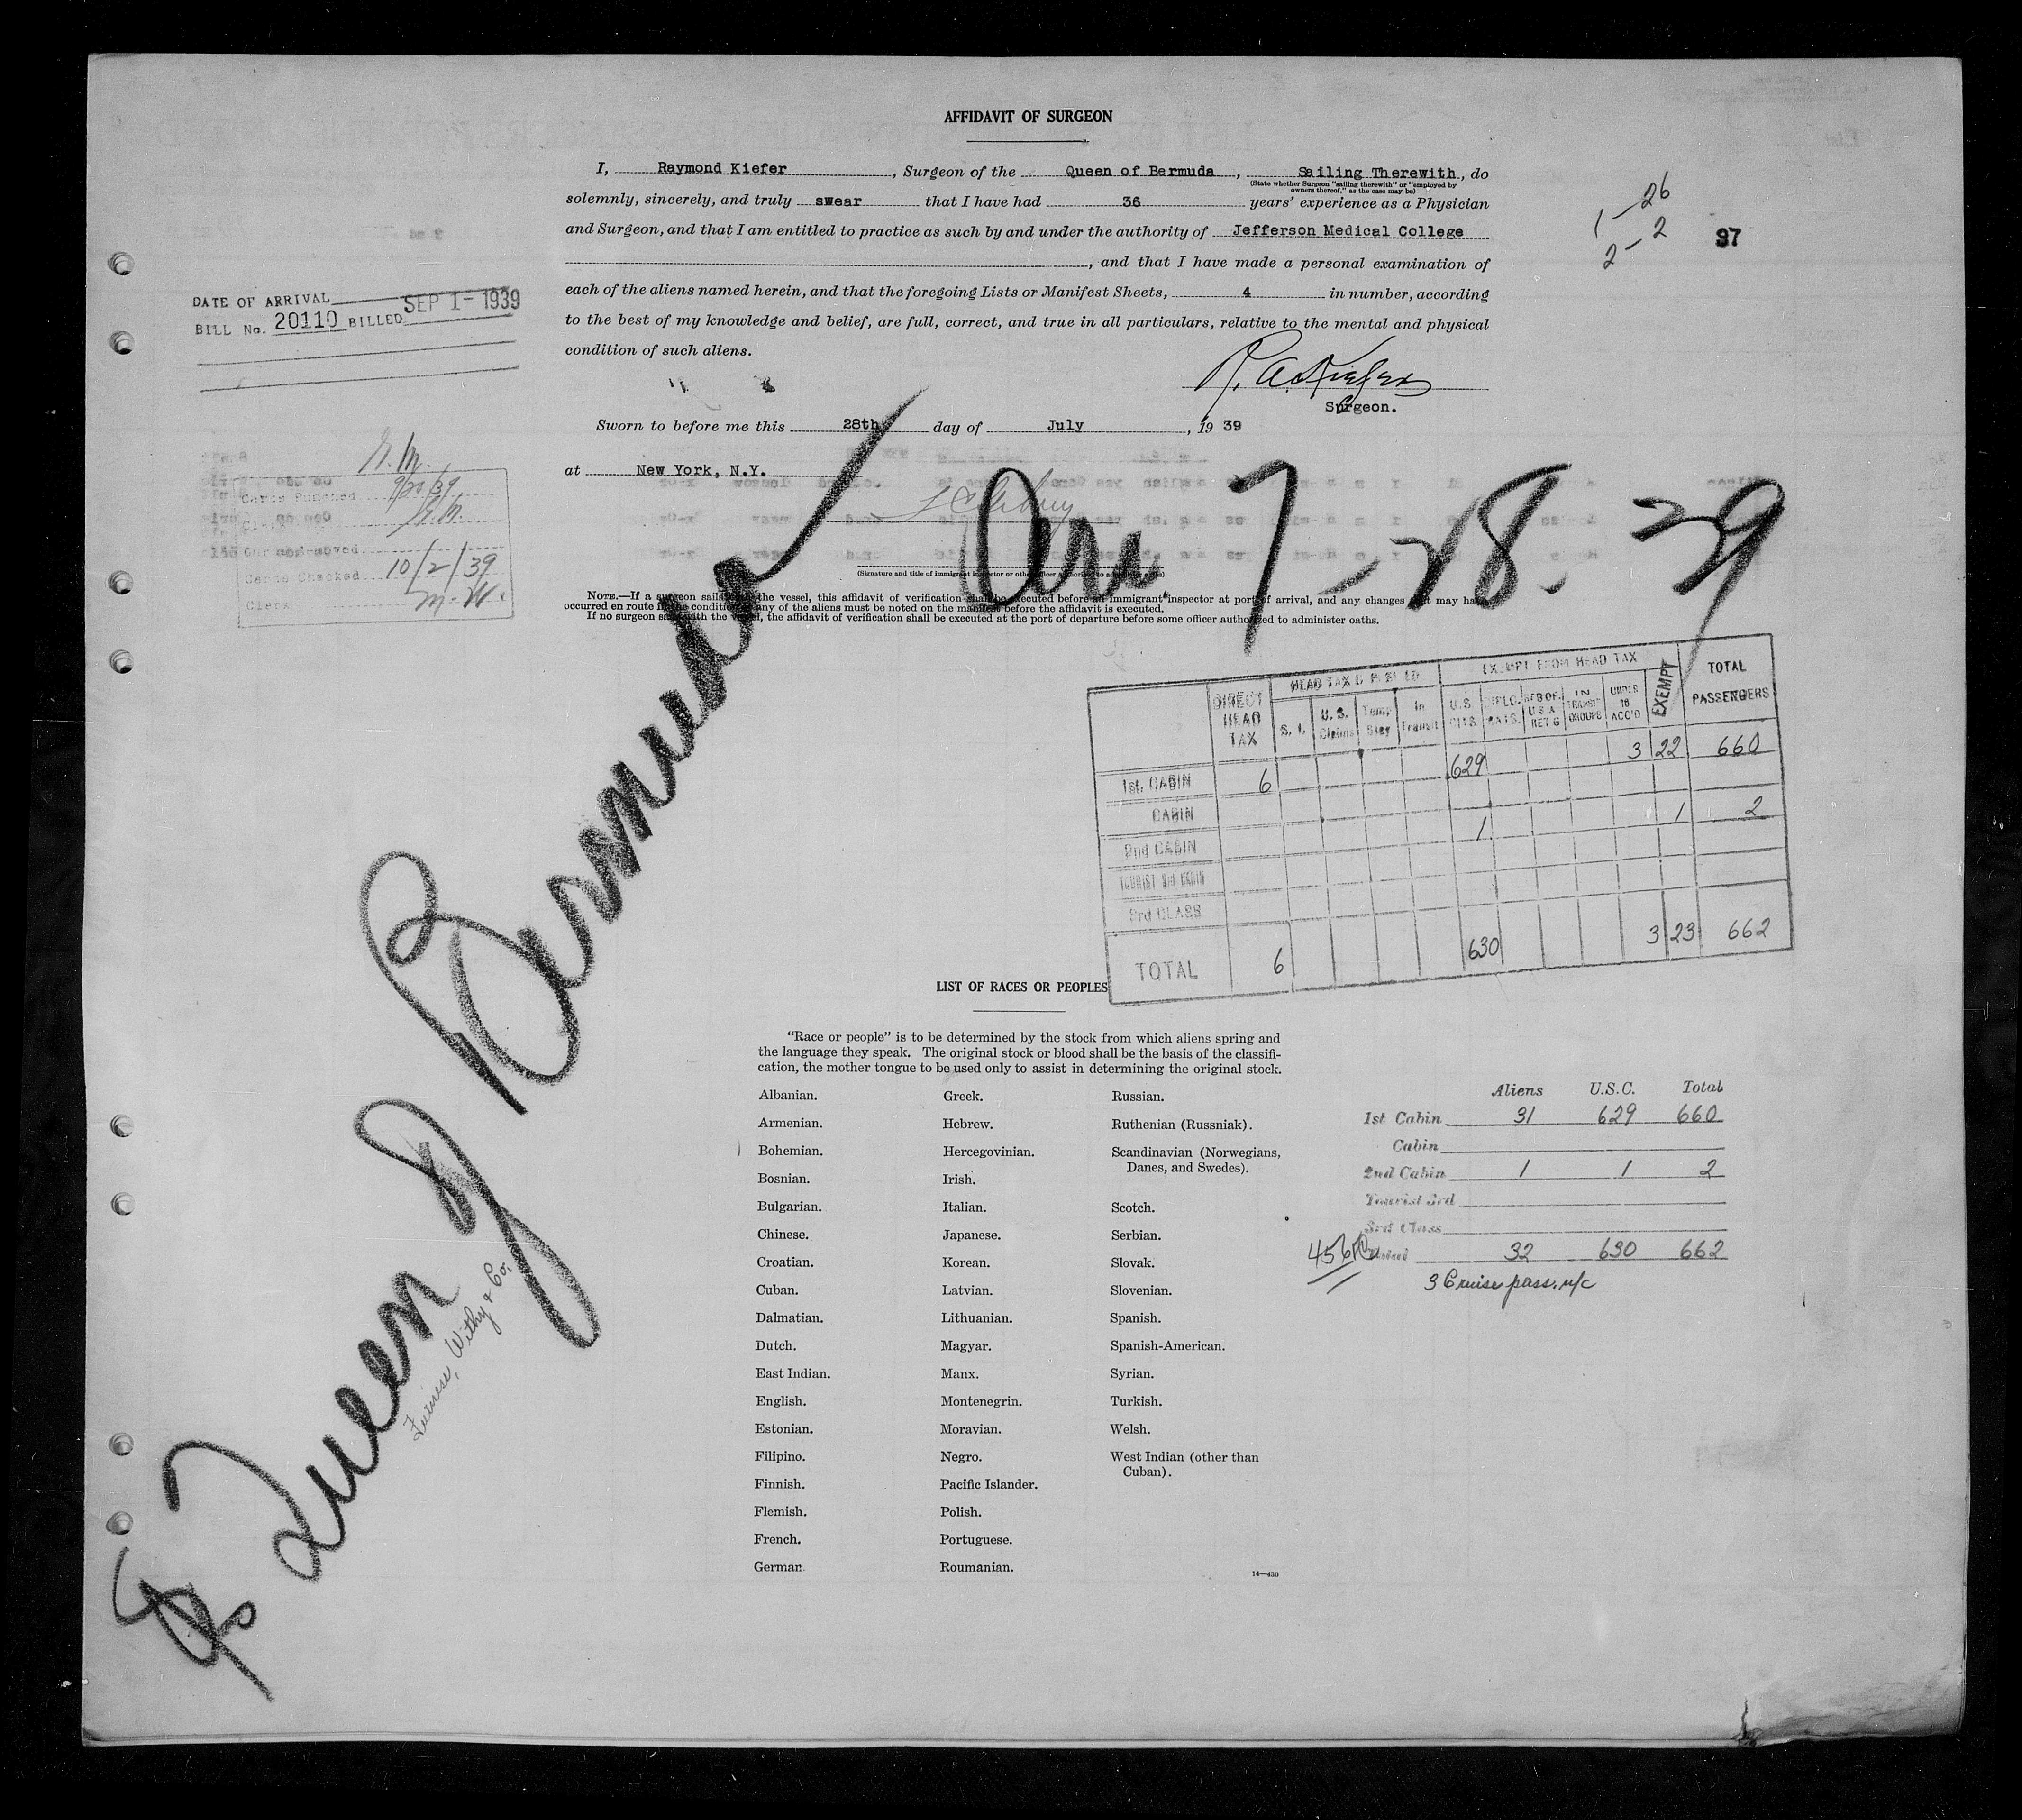 AFFIDAVIT OF SURGEON
I, Raymond Kiefer, Surgeon of the Queen of Bermuda, Sailing Therewith, do
(State whether Surgeon "sailing therewith" or "employed by
owners thereof," as the case may be)
solemnly, sincerely, and truly swear that I have had 36 years' experience as a Physician
and Surgeon, and that I am entitled to practice as such by and under the authority of Jefferson Medical College
, and that I have made a personal examination of
each of the aliens named herein, and that the foregoing Lists or Manifest Sheets, 4 in number, according
to the best of my knowledge and belief, are full, correct, and true in all particulars, relative to the mental and physical
condition of such aliens.
R. A. Kiefer
Surgeon.
Sworn to before me this 28th day of July, 19 39
at New York, N.Y.
(Signature and title of immigrant inspector or other officer authorized to administer oaths)
NOTE.—If a surgeon sails with the vessel, this affidavit of verification shall be executed before an immigrant inspector at port of arrival, and any changes that may have
occurred en route in the condition of any of the aliens must be noted on the manifest before the affidavit is executed.
If no surgeon sails with the vessel, the affidavit of verification shall be executed at the port of departure before some officer authorized to administer oaths.
1-26
2-2
97
DATE OF ARRIVAL
BILL No. 20110 BILLED SEP 1- 1939
Cards Punched 9/20/39
Cards Checked 10/2/39
Clerk M.W.
Arr 7-28-39
SS Queen of Bermuda
Furness, Withy & Co.
DIRECT HEAD TAX
HEAD TAX DEPOSITED
S. I.
U. S. Citizens
Temp Stay
In Transit
EXEMPT FROM HEAD TAX
U.S. CITS.
DIPLO-MATS.
RES OF U S A RET'G
IN TRANSIT GROUPS
UNDER 16 ACC'D
EXEMPT
TOTAL PASSENGERS
1st. CABIN 6 629 3 22 660
CABIN
2nd CABIN 1 1 2
TOURIST 3rd CABIN
3rd CLASS
TOTAL 6 630 3 23 662
LIST OF RACES OR PEOPLES
"Race or people" is to be determined by the stock from which aliens spring and
the language they speak. The original stock or blood shall be the basis of the classifi-
cation, the mother tongue to be used only to assist in determining the original stock.
Albanian.
Armenian.
Bohemian.
Bosnian.
Bulgarian.
Chinese.
Croatian.
Cuban.
Dalmatian.
Dutch.
East Indian.
English.
Estonian.
Filipino.
Finnish.
Flemish.
French.
German
Greek.
Hebrew.
Hercegovinian.
Irish.
Italian.
Japanese.
Korean.
Latvian.
Lithuanian.
Magyar.
Manx.
Montenegrin.
Moravian.
Negro.
Pacific Islander.
Polish.
Portuguese.
Roumanian.
Russian.
Ruthenian (Russniak).
Scandinavian (Norwegians,
Danes, and Swedes).
Scotch.
Serbian.
Slovak.
Slovenian.
Spanish.
Spanish-American.
Syrian.
Turkish.
Welsh.
West Indian (other than
Cuban).
14—430
Aliens U.S.C. Total
1st Cabin 31 629 660
Cabin
2nd Cabin 1 1 2
Tourist 3rd
3rd Class
32 630 662
3 Cruise pass. n/c